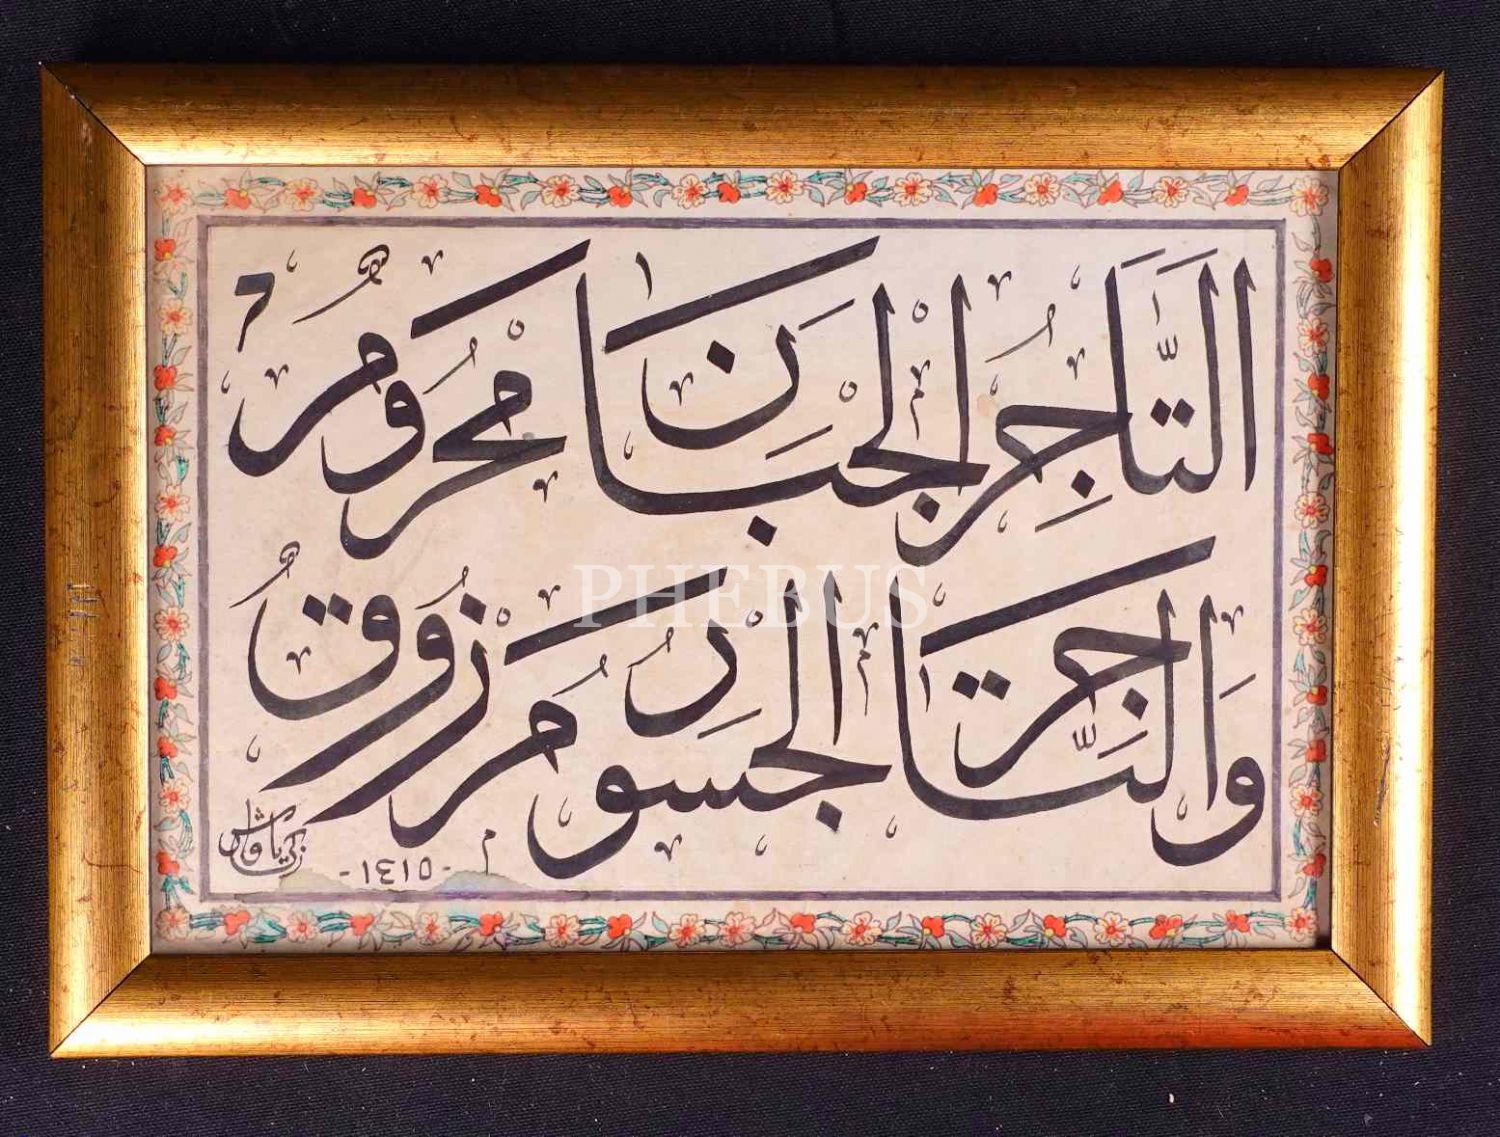 التَّاجِرُ الجَبَانُ مَحْرُومٌ
وَالتَّاجِرُ الجَسُورُ مَرْزُوقٌ
-١٤١٥-
PHEBUS